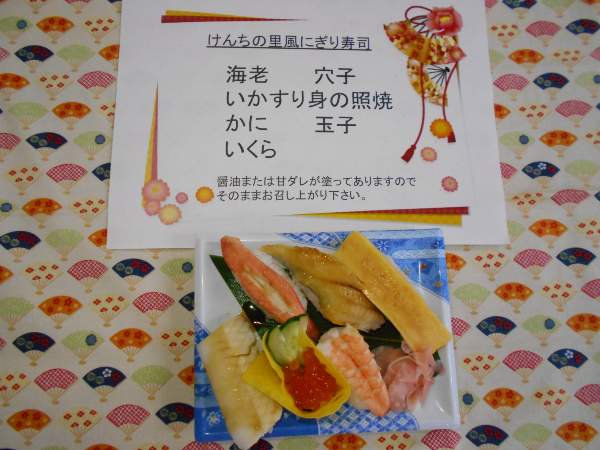 けんちの里風にぎり寿司
海老　　穴子
いかすり身の照焼
かに　　玉子
いくら
醤油または甘ダレが塗ってありますので
そのままお召し上がり下さい。